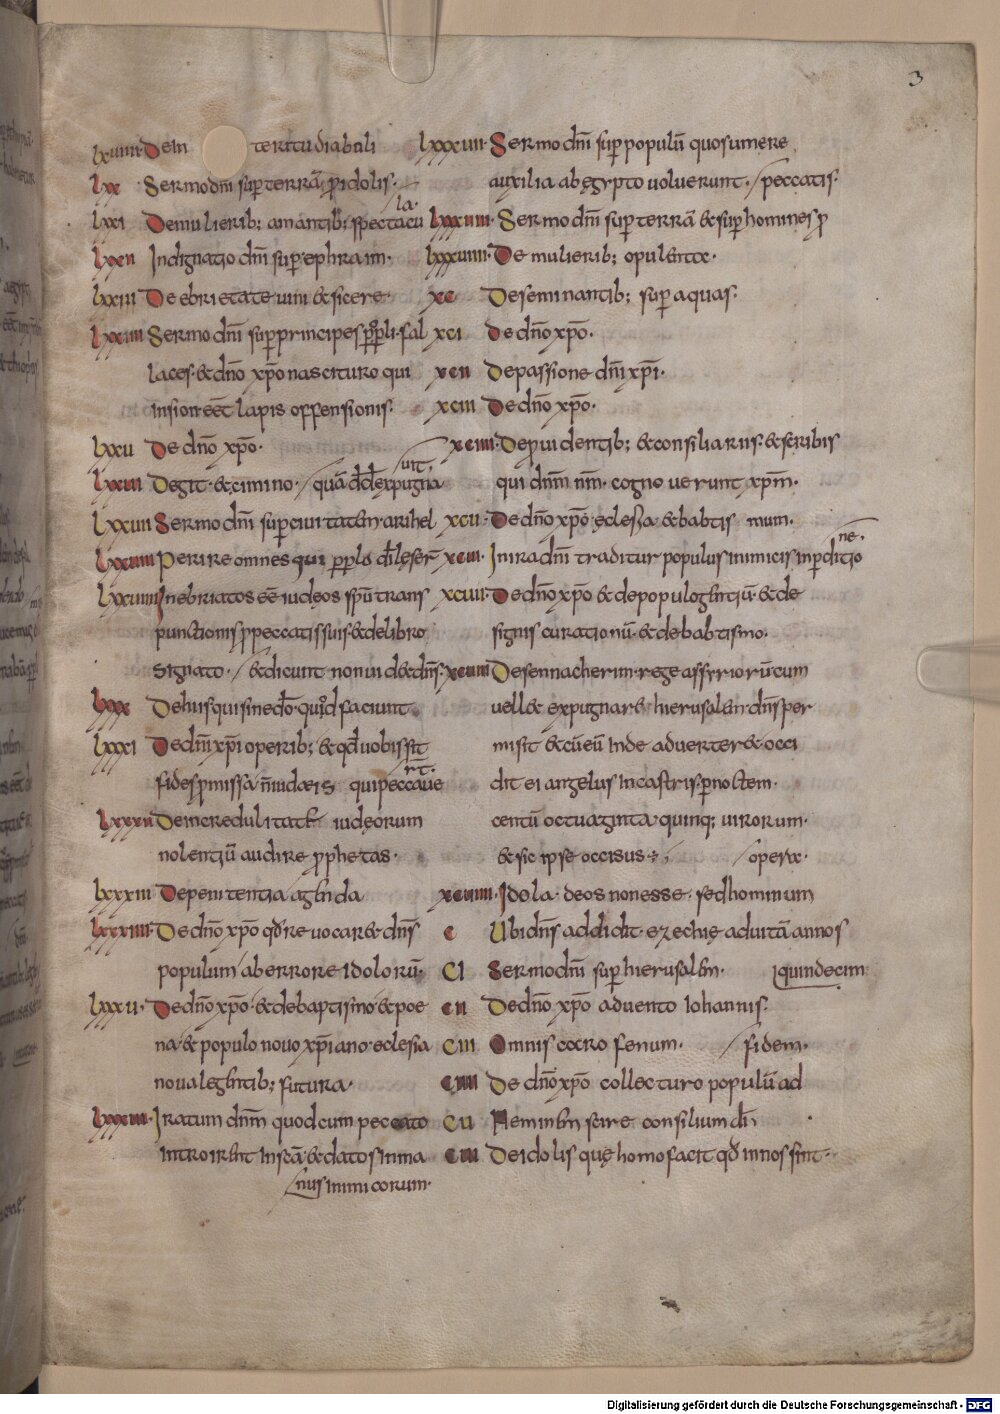 3
lxviiii De in teritu diabuli
lxx Sermo dñi sup̱ terrã p̱ idolis·
lxxi De mulierib; amantib; spectacu
la·
lxxii Indignatio dñi sup̱ ephraim·
lxxiii De ebrietate uini & sicere·
lxxiiii Sermo dñi sup̱ principes p̱p̱li· fal
laces· & dño xp̃o nascituro qui
in sion· eẽt lapis offensionis·
lxxv De dño xp̃o·
lxxvi De git· & cimino·
lxxvii Sermo dñi sup̱ ciuitatem· arihel
lxxviii Perire omnes qui
lxxviiii Inebriatos eẽ iudeos sp̃u trans
punctionis p̱ peccatis suis· & de libro
signato· / & dicunt non uid& dñs·
lxxx De huis qui sine dõ· quid faciunt
lxxxi De dñi xp̃i operib; & qđ uobis sit
fides p̱missa
lxxxii De incredulitate iudęorum
nolentiũ audire p̱phetas·
lxxxiii De penitentia agenda
lxxxiiii De dño xp̃o qđ re uocar& dñs
populum ab errore idolorũ·
lxxxv· De dño xp̃o· & de baptismo· & poe
na· & populo nouo xp̃iano· eclesia
noua legentib; futura·
lxxxvi· Iratum dñm quod cum peccato
introirent in scã· & datos in ma
nus inimicorum·
lxxxvii· Sermo dñi sup̱ populũ quo sumere
auxilia ab ęgypto uoluerunt· / peccatis·
lxxxviii· Sermo dñi sup̱ terrã & sup̱ homines p̱
lxxxviiii· De mulierib; opulentæ·
xc De seminantib; sup̱ aquas·
xci De dño xp̃o·
xcii De passione dñi xp̃i·
xciii De dño xp̃o·
xciiii· De p̱uidentib; & consiliariis· & scribis
qui dñm nm̃· cogno uerunt xp̃m·
xcv· De dño xp̃o· eclesia & babtis mum·
xcvi· In ira dñi traditur populus inimicis in p̱ditio
ne·
xcvii· De dño xp̃o & de populo gentiũ· & de
signis curationũ· & de babtismo·
xcviii De sennacherim· rege assyriorũ cum
uell& expugnare hierusalem· dñs per
misit & cũ eũ inde aduerter& occi
dit ei angelus in castris· p̱ noctem·
centũ octuaginta· quinq; uirorum·
& sic ipse occisus·; / operæ·
xcviiii· Idola· deos non esse· sed hominum
c Ubi dñs addidit· ezechię ad uitã annos
ci Sermo dñi sup̱ hierusalem· quindecim
cii De dño xp̃o aduento iohannis·
ciii Omnis caro fenum· / fidem·
ciiii De dño xp̃o collecturo populũ ad
cv Neminem scire consilium dĩ
cvi De idolis quę homo facit qđ in nos sint·
Digitalisierung gefördert durch die Deutsche Forschungsgemeinschaft - DFG